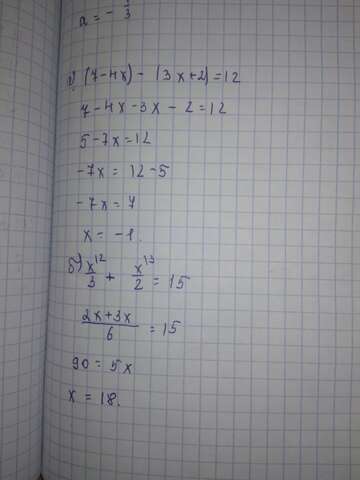 a = - 1/3
а) (7-4x) - (3x+2) = 12
7-4x-3x-2=12
5-7x=12
-7x = 12-5
-7x = 7
x = -1.
б) x/3 + x/2 = 15
2x+3x/6 = 15
90 = 5x
x = 18.